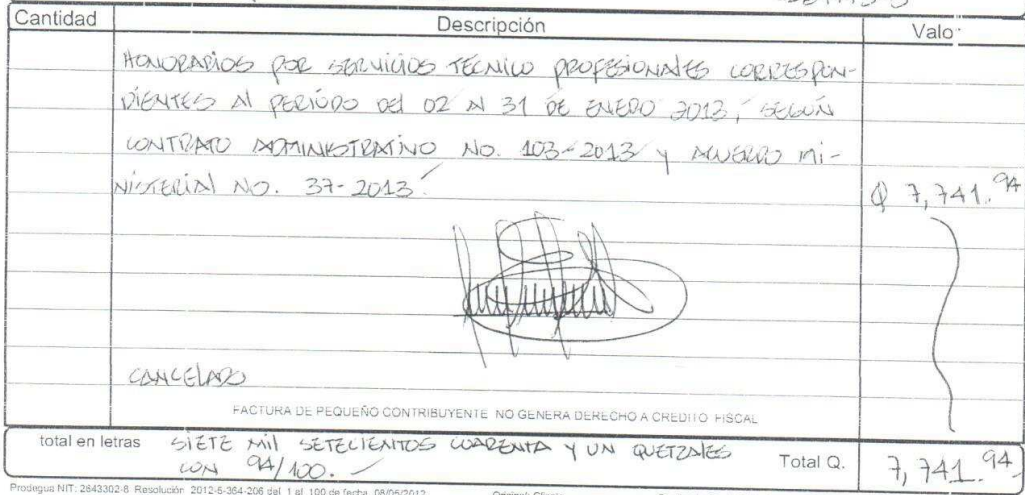 Cantidad Descripción Valor
HONORARIOS POR SERVICIOS TECNICO PROFESIONALES CORRESPON-
DIENTES AL PERIÓDO DEL 02 AL 31 DE ENERO 2013, SEGÚN
CONTRATO ADMINISTRATIVO NO. 103-2013 Y ACUERDO MI-
NISTERIAL NO. 37-2013.
Q 7,741.94
CANCELADO
FACTURA DE PEQUEÑO CONTRIBUYENTE NO GENERA DERECHO A CREDITO FISCAL
total en letras SIETE MIL SETECIENTOS CUARENTA Y UN QUETZALES
CON 94/100. Total Q. 7,741.94
Prodegua NIT: 2643302-8 Resolución 2012-5-364-206 del 1 al 100 de fecha 08/05/2012 Original: Cliente